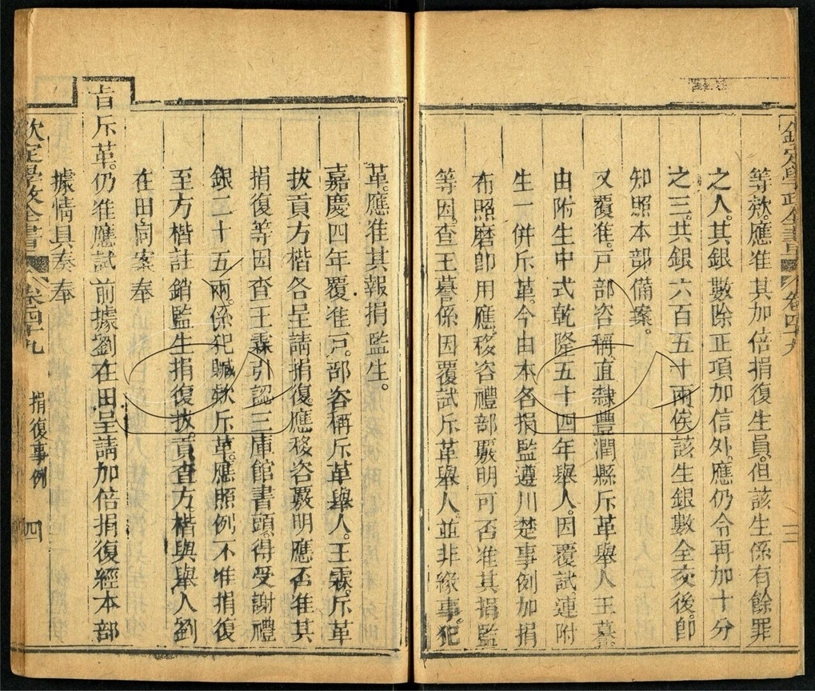 欽定學政全書 卷四十九 三
等欵應准其加倍捐復生員但該生係有餘罪
之人其銀數除正項加倍外應仍令再加十分
之三共銀六百五十兩俟該生銀數全交後即
知照本部備案
又覆准戶部咨稱直隸豐潤縣斥革舉人王墓
由附生中式乾隆五十四年舉人因覆試連附
生一併斥革今由本名捐監遵川楚事例加捐
布照磨卽用應移咨禮部覈明可否准其捐監
等因查王墓係因覆試斥革舉人並非緣事犯
革應准其報捐監生
嘉慶四年覆准戶部咨稱斥革舉人王霖斥革
拔貢方楷各呈請捐復應移咨覈明應否准其
捐復等因查王霖引認三庫館書頭得受謝禮
銀二十五兩係犯贓欵斥革應照例不准捐復
至方楷註銷監生捐復拔貢查方楷與舉人劉
在田同案奉
旨斥革仍准應試前據劉在田呈請加倍捐復經本部
據情具奏奉
欽定學政全書 卷四十九 捐復事例 四